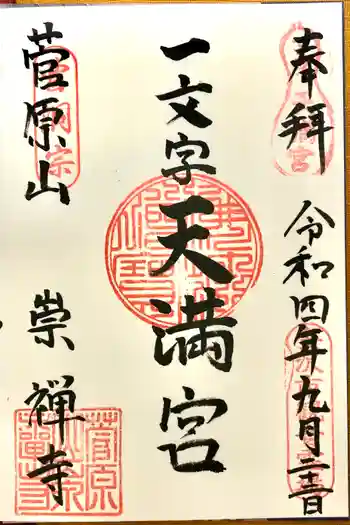 奉拝
令和四年九月二十三日
一文字天満宮
菅原山
崇禅寺